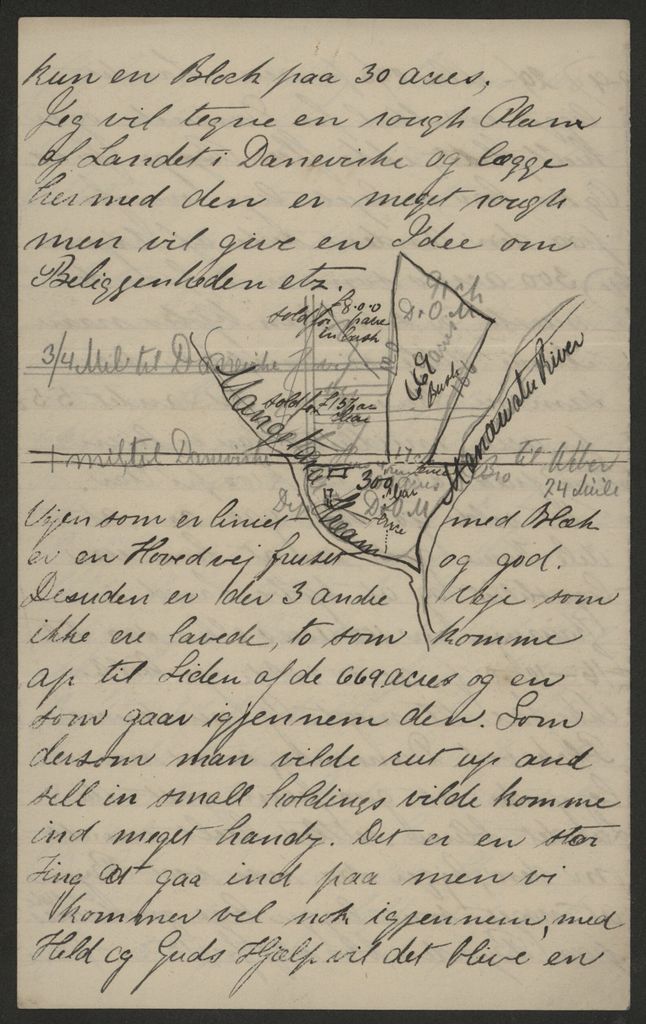 kun en Block paa 30 acres,
Jeg vil tegne en rough Plan
af Landet i Danevirke og lægge
hermed den er meget rough
men vil give en Idee om
Beliggenheden etz.
sold for £8-0-0
in bush
Dr O. M
669
Bush
3/4 Mil til Danevirke
sold for £15
Manawatu River
Mangatera Stream
1 mil til Danevirke
300
Dr O. M
til
24 Mile
Vejen som er liniet med Blæk
er en Hovedvej og god.
Desuden er der 3 andre Veje som
ikke ere lavede, to som komme
op til Siden af de 669 acres og en
som gaar igjennem den. Som
dersom man vilde cut up and
sell in small holdings vilde komme
ind meget handy. Det er en stor
Ting at gaa ind paa men vi
kommer vel nok igjennem, med
Held og Guds Hjælp vil det blive en